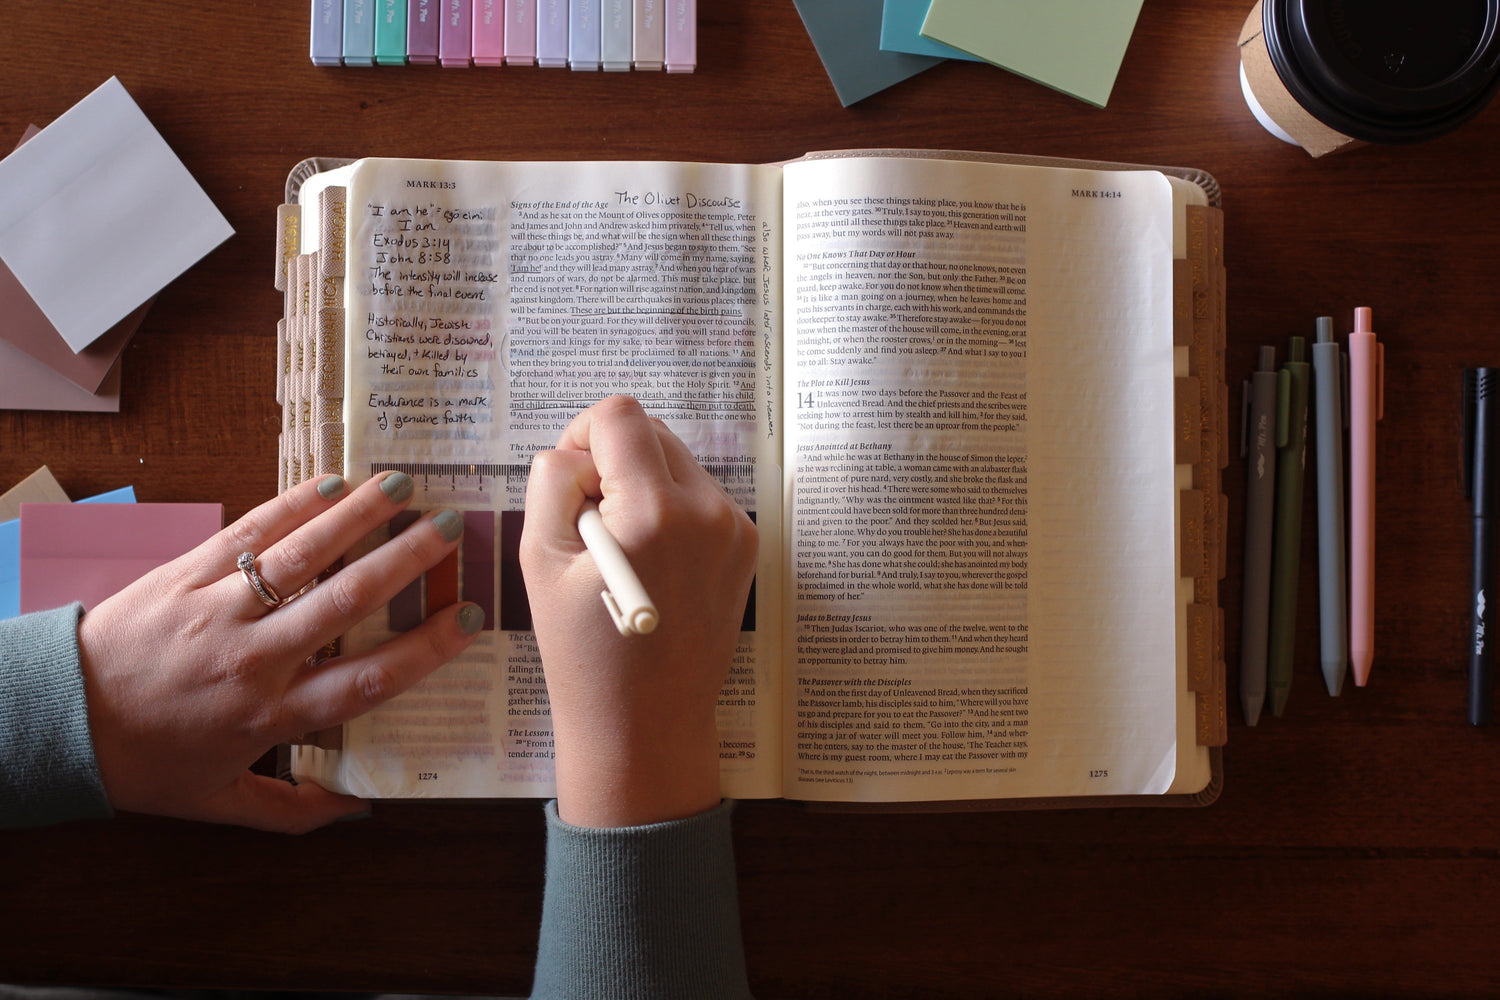 MARK 13:3
"I am he" = egō eimi
I am
Exodus 3:14
John 8:58
The intensity will increase
before the final event
Historically, Jewish
Christians were disowned,
betrayed, + killed by
their own families
Endurance is a mark
of genuine faith
The Olivet Discourse
Signs of the End of the Age
3 And as he sat on the Mount of Olives opposite the temple, Peter
and James and John and Andrew asked him privately, 4 "Tell us, when
will these things be, and what will be the sign when all these things
are about to be accomplished?" 5 And Jesus began to say to them, "See
that no one leads you astray. 6 Many will come in my name, saying,
'I am he!' and they will lead many astray. 7 And when you hear of wars
and rumors of wars, do not be alarmed. This must take place, but
the end is not yet. 8 For nation will rise against nation, and kingdom
against kingdom. There will be earthquakes in various places; there
will be famines. These are but the beginning of the birth pains.
9 "But be on your guard. For they will deliver you over to councils,
and you will be beaten in synagogues, and you will stand before
governors and kings for my sake, to bear witness before them.
10 And the gospel must first be proclaimed to all nations. 11 And
when they bring you to trial and deliver you over, do not be anxious
beforehand what you are to say, but say whatever is given you in
that hour, for it is not you who speak, but the Holy Spirit. 12 And
brother will deliver brother over to death, and the father his child,
and children will rise and have them put to death.
13 And you will be name's sake. But the one who
endures to the
also where Jesus later ascends into heaven
The Abomin
14 "B olation standing
2 3 4 5
The Co
24 "Bu dark-
ened, an will be
falling fr shaken.
26 And th ds with
great pow angels and
gather his e earth to
the ends of
The Lesson o
28 "From th becomes
tender and p near. 29 So
1274
MARK 14:14
also, when you see these things taking place, you know that he is
near, at the very gates. 30 Truly, I say to you, this generation will not
pass away until all these things take place. 31 Heaven and earth will
pass away, but my words will not pass away.
No One Knows That Day or Hour
32 "But concerning that day or that hour, no one knows, not even
the angels in heaven, nor the Son, but only the Father. 33 Be on
guard, keep awake. For you do not know when the time will come.
34 It is like a man going on a journey, when he leaves home and
puts his servants in charge, each with his work, and commands the
doorkeeper to stay awake. 35 Therefore stay awake—for you do not
know when the master of the house will come, in the evening, or at
midnight, or when the rooster crows, or in the morning— 36 lest
he come suddenly and find you asleep. 37 And what I say to you I
say to all: Stay awake."
The Plot to Kill Jesus
14 It was now two days before the Passover and the Feast of
Unleavened Bread. And the chief priests and the scribes were
seeking how to arrest him by stealth and kill him, 2 for they said,
"Not during the feast, lest there be an uproar from the people."
Jesus Anointed at Bethany
3 And while he was at Bethany in the house of Simon the leper,
as he was reclining at table, a woman came with an alabaster flask
of ointment of pure nard, very costly, and she broke the flask and
poured it over his head. 4 There were some who said to themselves
indignantly, "Why was the ointment wasted like that? 5 For this
ointment could have been sold for more than three hundred dena-
rii and given to the poor." And they scolded her. 6 But Jesus said,
"Leave her alone. Why do you trouble her? She has done a beautiful
thing to me. 7 For you always have the poor with you, and when-
ever you want, you can do good for them. But you will not always
have me. 8 She has done what she could; she has anointed my body
beforehand for burial. 9 And truly, I say to you, wherever the gospel
is proclaimed in the whole world, what she has done will be told
in memory of her."
Judas to Betray Jesus
10 Then Judas Iscariot, who was one of the twelve, went to the
chief priests in order to betray him to them. 11 And when they heard
it, they were glad and promised to give him money. And he sought
an opportunity to betray him.
The Passover with the Disciples
12 And on the first day of Unleavened Bread, when they sacrificed
the Passover lamb, his disciples said to him, "Where will you have
us go and prepare for you to eat the Passover?" 13 And he sent two
of his disciples and said to them, "Go into the city, and a man
carrying a jar of water will meet you. Follow him, 14 and wher-
ever he enters, say to the master of the house, 'The Teacher says,
Where is my guest room, where I may eat the Passover with my
1 That is, the third watch of the night, between midnight and 3 a.m. 2 Leprosy was a term for several skin
diseases (see Leviticus 13)
1275
Mr. Pen